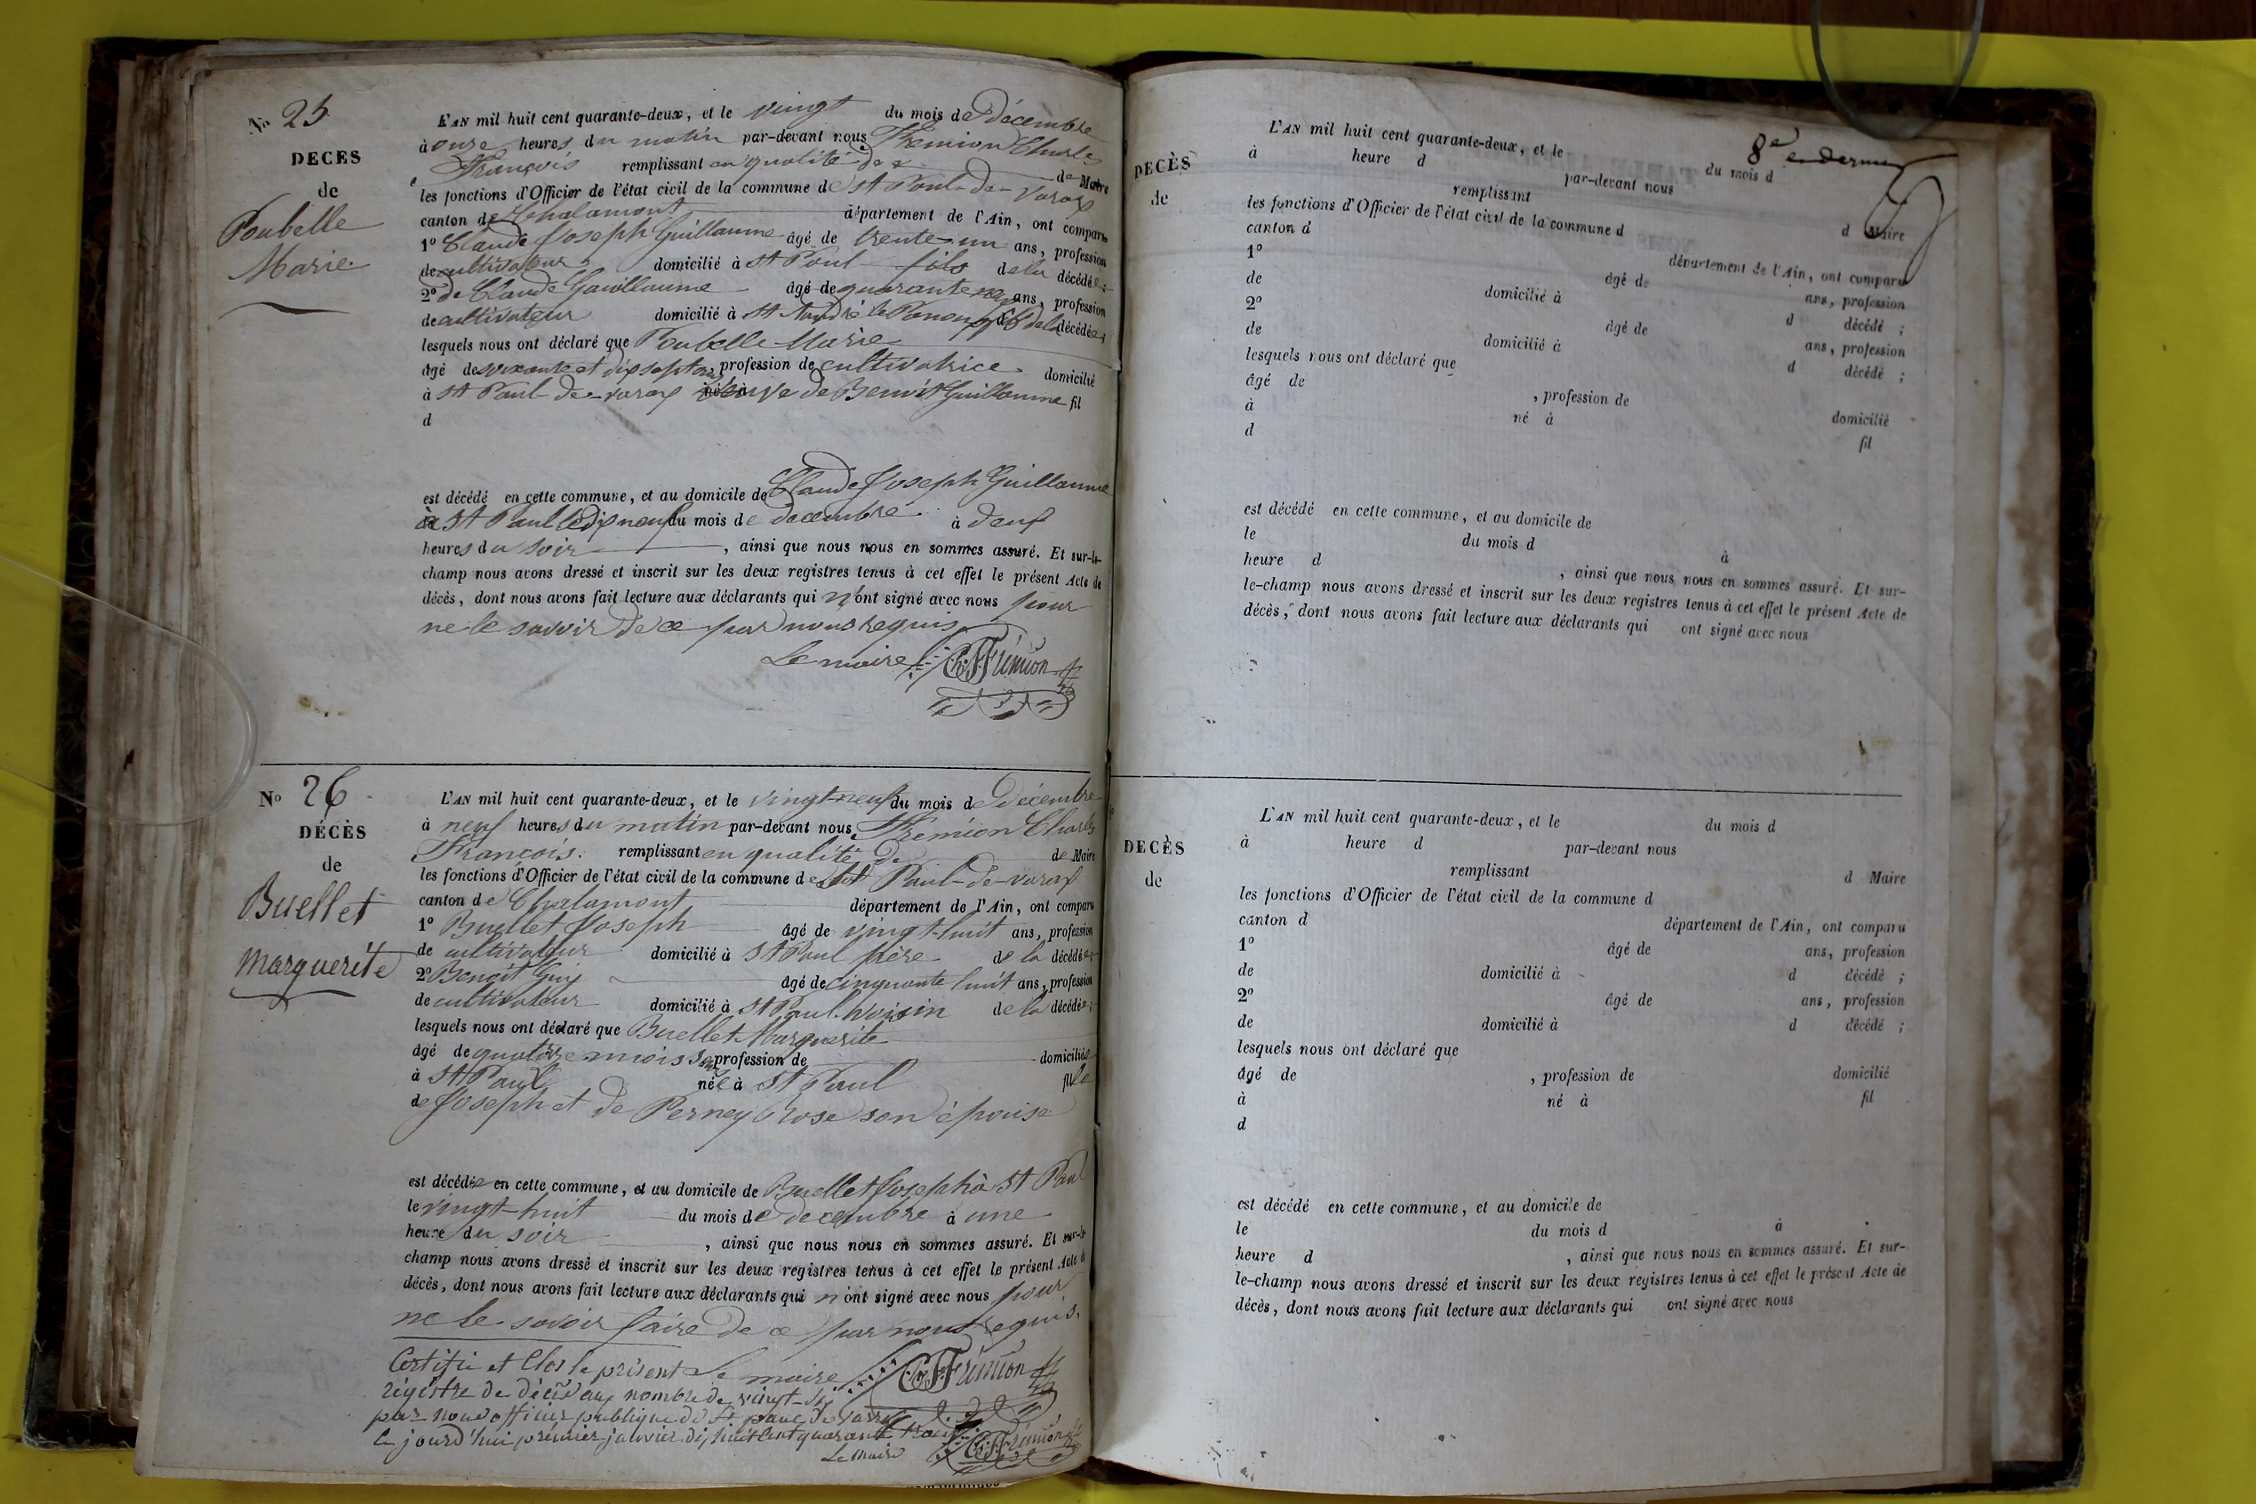 No 25
DECES
de
Poubelle
Marie
L'AN mil huit cent quarante-deux, et le vingt du mois de décembre
à onze heures du matin par-devant nous Fremion Charles
François remplissant en qualité de de Maire
les fonctions d'Officier de l'état civil de la commune de St Paul-de-varax
canton de Chalamont département de l'Ain, ont comparu
1o Claude Joseph Guillaume âgé de trente-un ans, profession
de cultivateur domicilié à St Paul fils de la décédée;
2o de Claude Guillaume âgé de quarante ans, profession
de cultivateur domicilié à St André le Panoux de la décédée
lesquels nous ont déclaré que Poubelle Marie
âgé de soixante et dix sept ans, profession de cultivatrice domicilié
à St Paul-de-varax veuve de Benoit Guillaume fil
d
est décédé en cette commune, et au domicile de Claude Joseph Guillaume
à St Paul le dix neuf du mois de decembre à
heures du soir , ainsi que nous nous en sommes assuré. Et sur-le-
champ nous avons dressé et inscrit sur les deux registres tenus à cet effet le présent Acte de
décès, dont nous avons fait lecture aux déclarants qui n'ont signé avec nous pour
ne le savoir de ce par nous requis
Le maire Ch F Frémion
No 26
DÉCÈS
de
Buellet
Marguerite
L'AN mil huit cent quarante-deux, et le vingt-neuf du mois de décembre
à neuf heures du matin par-devant nous Fremion Charles
François. remplissant en qualité de de Maire
les fonctions d'Officier de l'état civil de la commune de St Paul-de-varax
canton de Chalamont département de l'Ain, ont comparu
1o Buellet Joseph âgé de vingt-huit ans, profession
de cultivateur domicilié à St Paul père de la décédée
2o Benoit Guy âgé de cinquante huit ans, profession
de cultivateur domicilié à St Paul voisin de la décédée;
lesquels nous ont déclaré que Buellet Marguerite
âgé de quatorze mois profession de domiciliée
à St Paul née à St Paul fille
de Joseph et de Perney Rose son épouse
est décédée en cette commune, et au domicile de Buellet Joseph à St Paul
le vingt-huit du mois de decembre à une
heure du soir , ainsi que nous nous en sommes assuré. Et sur-le-
champ nous avons dressé et inscrit sur les deux registres tenus à cet effet le présent Acte de
décès, dont nous avons fait lecture aux déclarants qui n'ont signé avec nous pour
ne le savoir faire de ce par nous requis.
Certifié et Clos le présent Le maire Ch F Frémion
régistre de décès au nombre de vingt-six
par nous officier publique de St paul de varax
ce jourd'hui premier janvier dix huit Cent quarante trois
Le Maire Ch F Frémion
8e et dernier
DÉCÈS
de
L'AN mil huit cent quarante-deux, et le du mois d
à heure d par-devant nous
remplissant d Maire
les fonctions d'Officier de l'état civil de la commune d
canton d département de l'Ain, ont comparu
1o âgé de ans, profession
de domicilié à d décédé ;
2o âgé de ans, profession
de domicilié à d décédé ;
lesquels nous ont déclaré que
âgé de , profession de domicilié
à né à fil
d
est décédé en cette commune, et au domicile de
le du mois d à
heure d , ainsi que nous nous en sommes assuré. Et sur-
le-champ nous avons dressé et inscrit sur les deux registres tenus à cet effet le présent Acte de
décès, dont nous avons fait lecture aux déclarants qui ont signé avec nous
DECÈS
de
L'AN mil huit cent quarante-deux, et le du mois d
à heure d par-devant nous
remplissant d Maire
les fonctions d'Officier de l'état civil de la commune d
canton d département de l'Ain, ont comparu
1o âgé de ans, profession
de domicilié à d décédé ;
2o âgé de ans, profession
de domicilié à d décédé ;
lesquels nous ont déclaré que
âgé de , profession de domicilié
à né à fil
d
est décédé en cette commune, et au domicile de
le du mois d à
heure d , ainsi que nous nous en sommes assuré. Et sur-
le-champ nous avons dressé et inscrit sur les deux registres tenus à cet effet le présent Acte de
décès, dont nous avons fait lecture aux déclarants qui ont signé avec nous